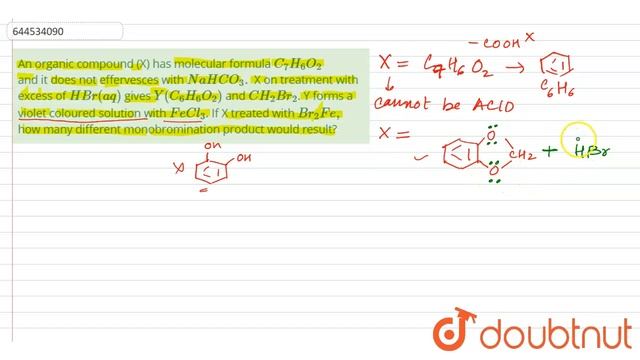 644534090
An organic compound (X) has molecular formula C₇H₆O₂
and it does not effervesces with NaHCO₃. X on treatment with
excess of HBr(aq) gives Y(C₆H₆O₂) and CH₂Br₂. Y forms a
violet coloured solution with FeCl₃. If X treated with Br₂Fe,
how many different monobromination product would result?
-COOH X
X = C₇H₆O₂ →
C₆H₆
cannot be ACID
X =
O
CH₂ + HBr
O
OH
OH
X
doubtnut